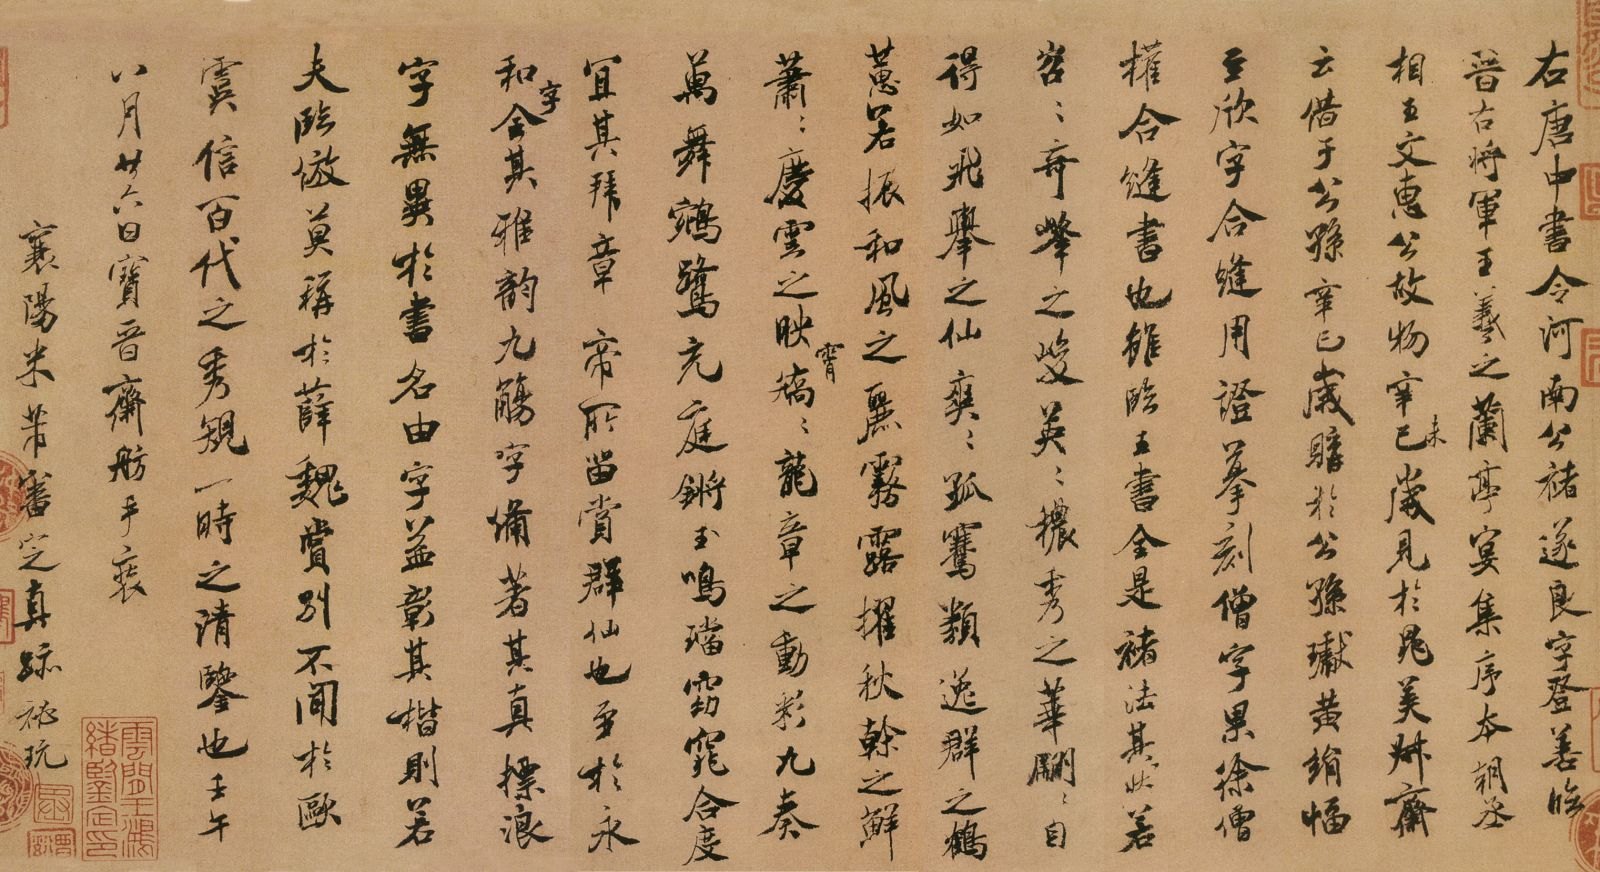 右唐中書令河南公褚遂良字登善臨
晉右將軍王羲之蘭亭宴集序本朝丞
相王文惠公故物辛巳未歲見於晁美叔齋
云借于公孫辛巳歲購於公孫瓛黃絹幅
至欣字合縫用證摹刻僧字果徐僧
權合縫書也雖臨王書全是褚法其狀若
岩〻奇峰之峻英〻穠秀之華翩〻自
得如飛舉之仙爽〻孤騫類逸群之鶴
蕙若振和風之麗霧露擢秋幹之鮮
蕭〻慶雲之映霄矯〻龍章之動彩九奏
萬舞鵷鷺充庭鏘玉鳴璫窈窕合度
宜其拜章帝所留賞群仙也至於永
和字合其雅韻九觴字備著其真標浪
字無異於書名由字益彰其楷則若
夫臨倣莫稱於薛魏賞別不聞於歐
虞信百代之秀規一時之清鑒也壬午
八月廿六日寶晉齋舫手裝
襄陽米芾審定真跡秘玩
雲間王鴻緒鑒定印